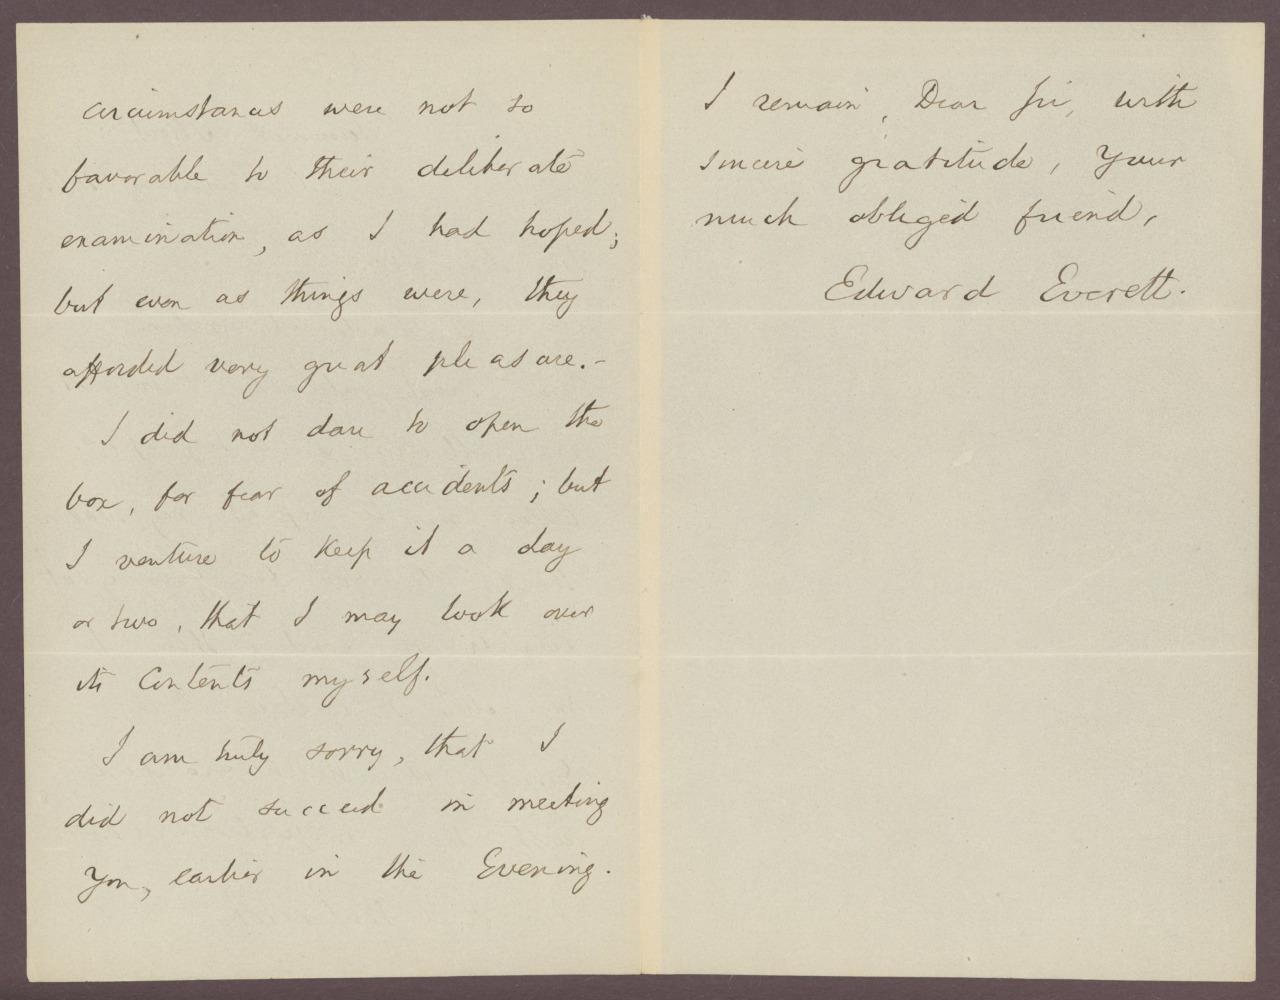 circumstances were not so
favorable to their deliberate
examination, as I had hoped;
but even as things were, they
afforded very great pleasure.-
I did not dare to open the
box, for fear of accidents; but
I venture to keep it a day
or two, that I may look over
its Contents myself.
I am truly sorry, that I
did not succeed in meeting
you, earlier in the Evening.
I remain, Dear Sir, with
sincere gratitude, Your
much obliged friend,
Edward Everett.